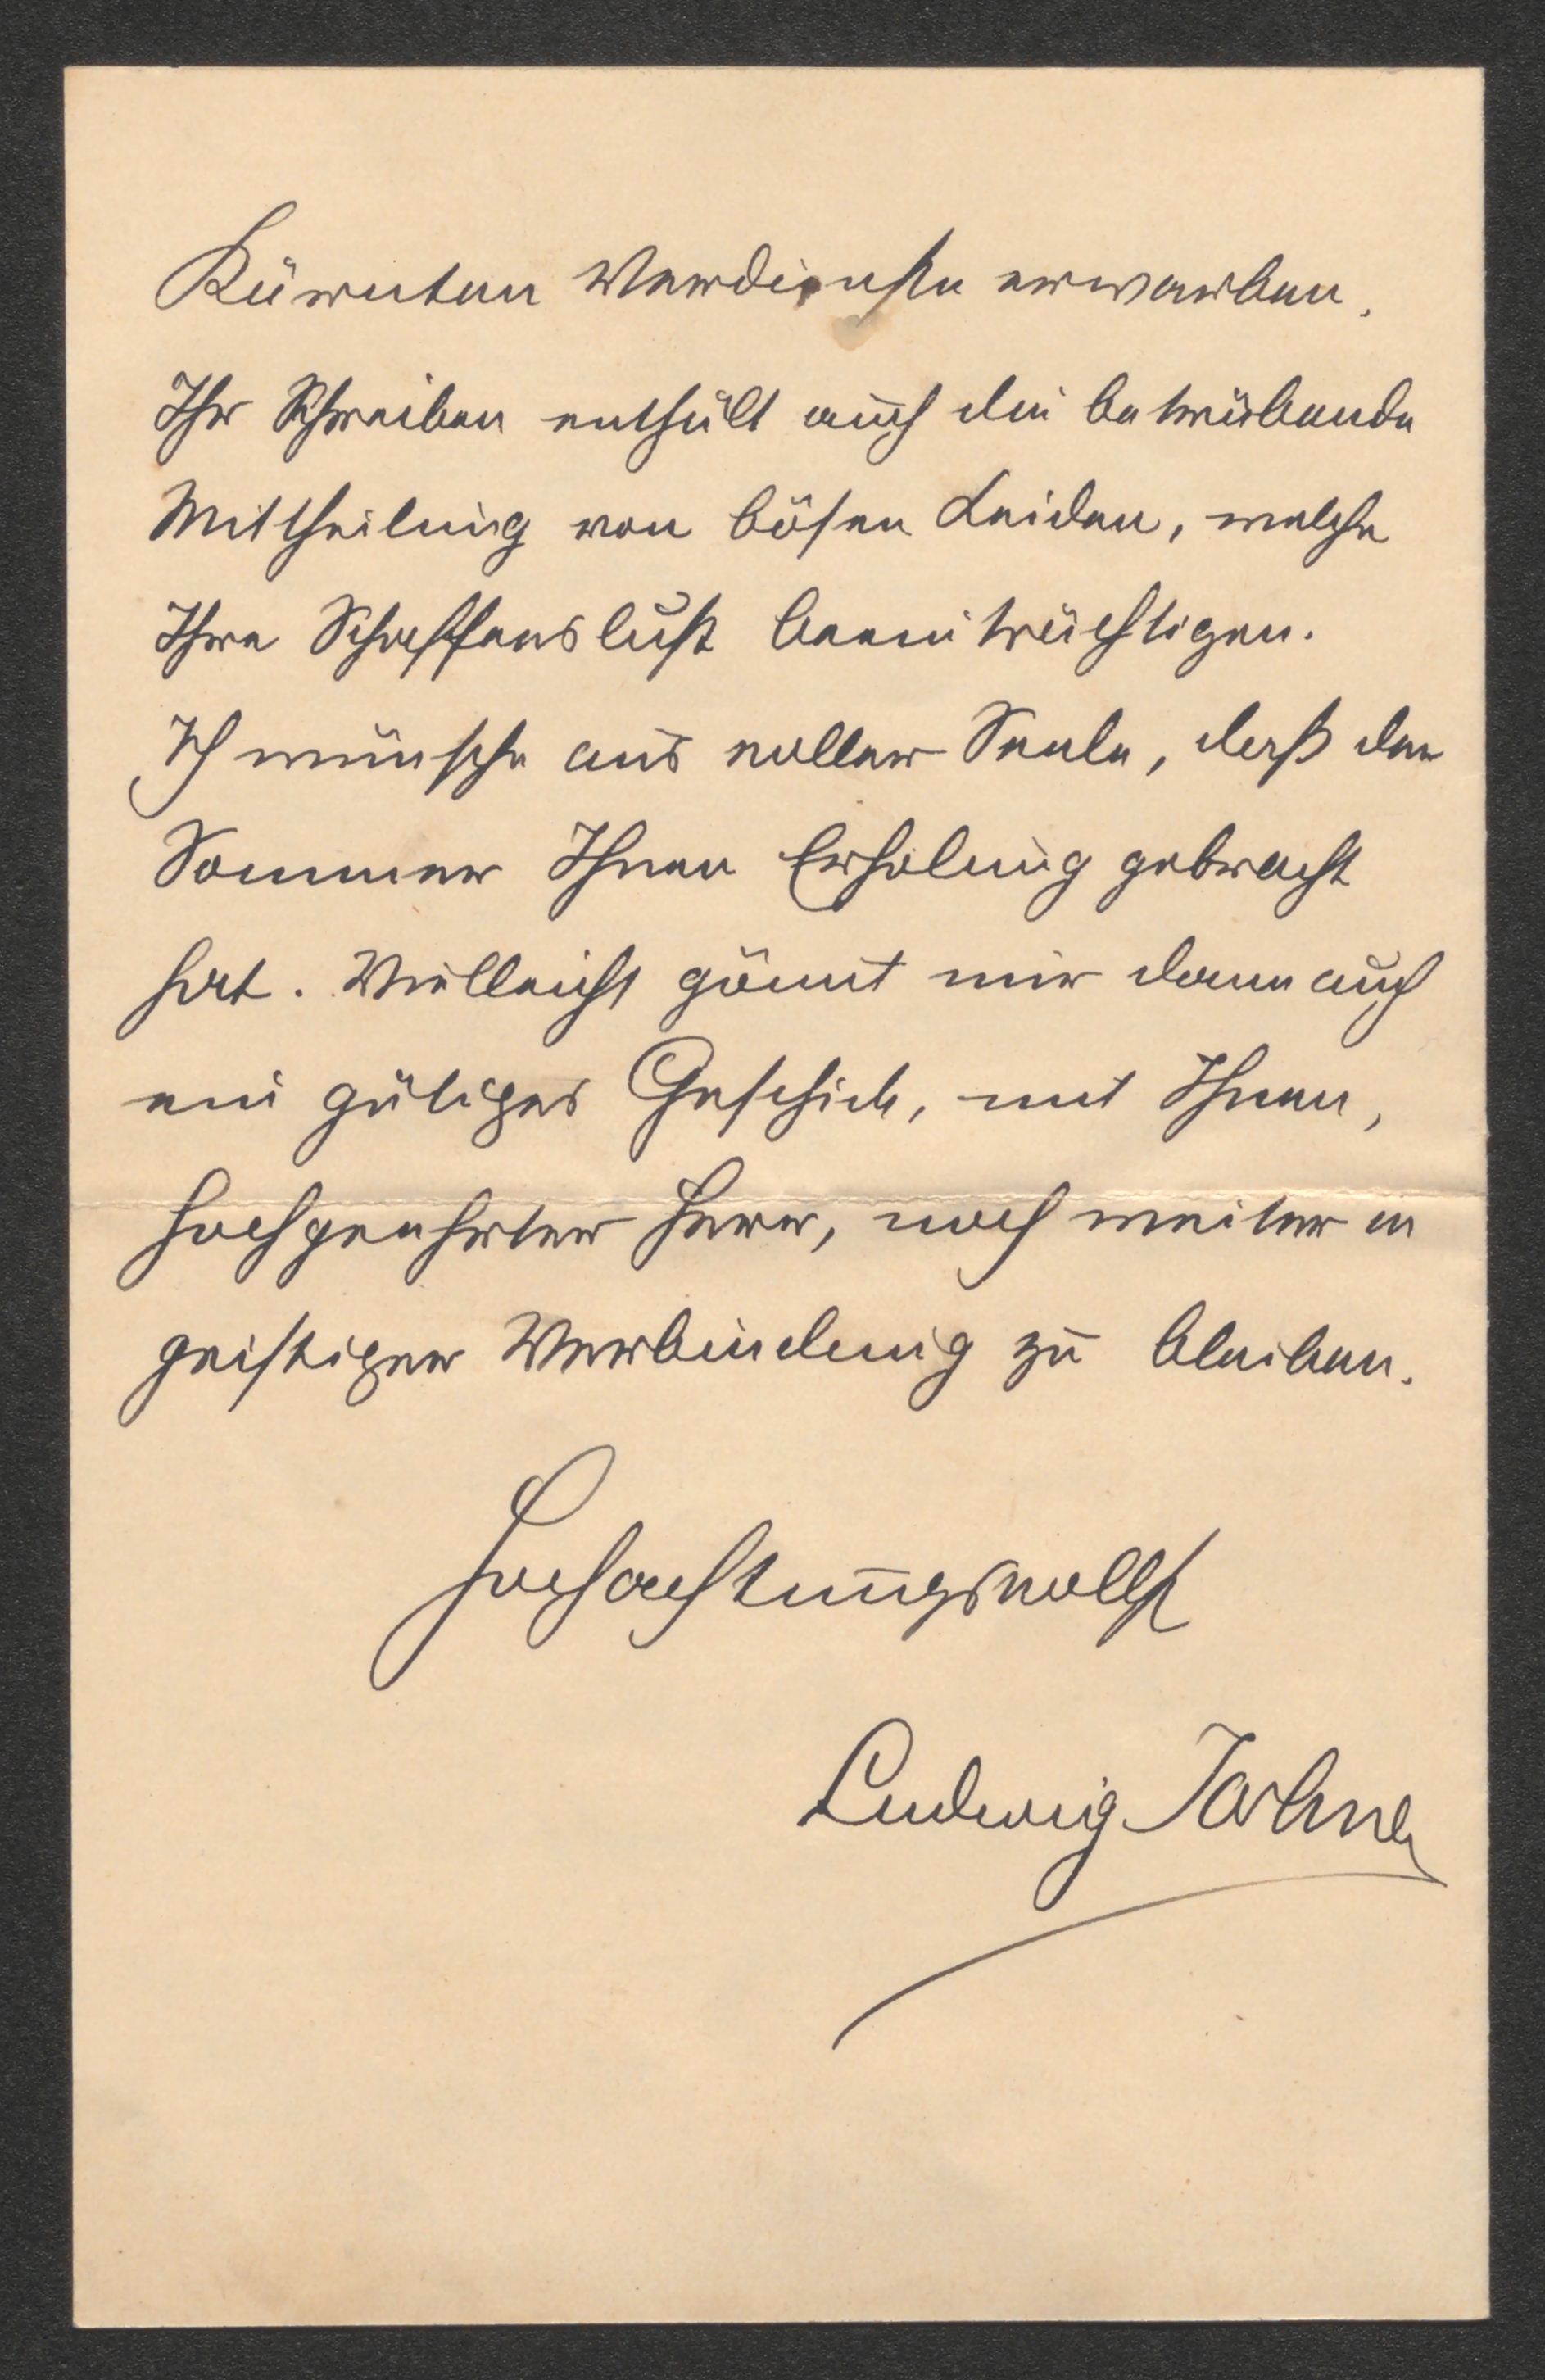 Kärnten Verdienste erwarben.
Ihr Schreiben enthält auch die betrübende
Mittheilung von bösen Leiden, welche
Ihre Schaffenslust beeinträchtigen.
Ich wünsche aus voller Seele, daß der
Sommer Ihnen Erholung gebracht
hat. Vielleicht gönnt mir dann auch
ein gütiges Geschick, mit Ihnen,
hochgeehrter Herr, noch weiter in
geistiger Verbindung zu bleiben.
Hochachtungsvollst
Ludwig Jahne